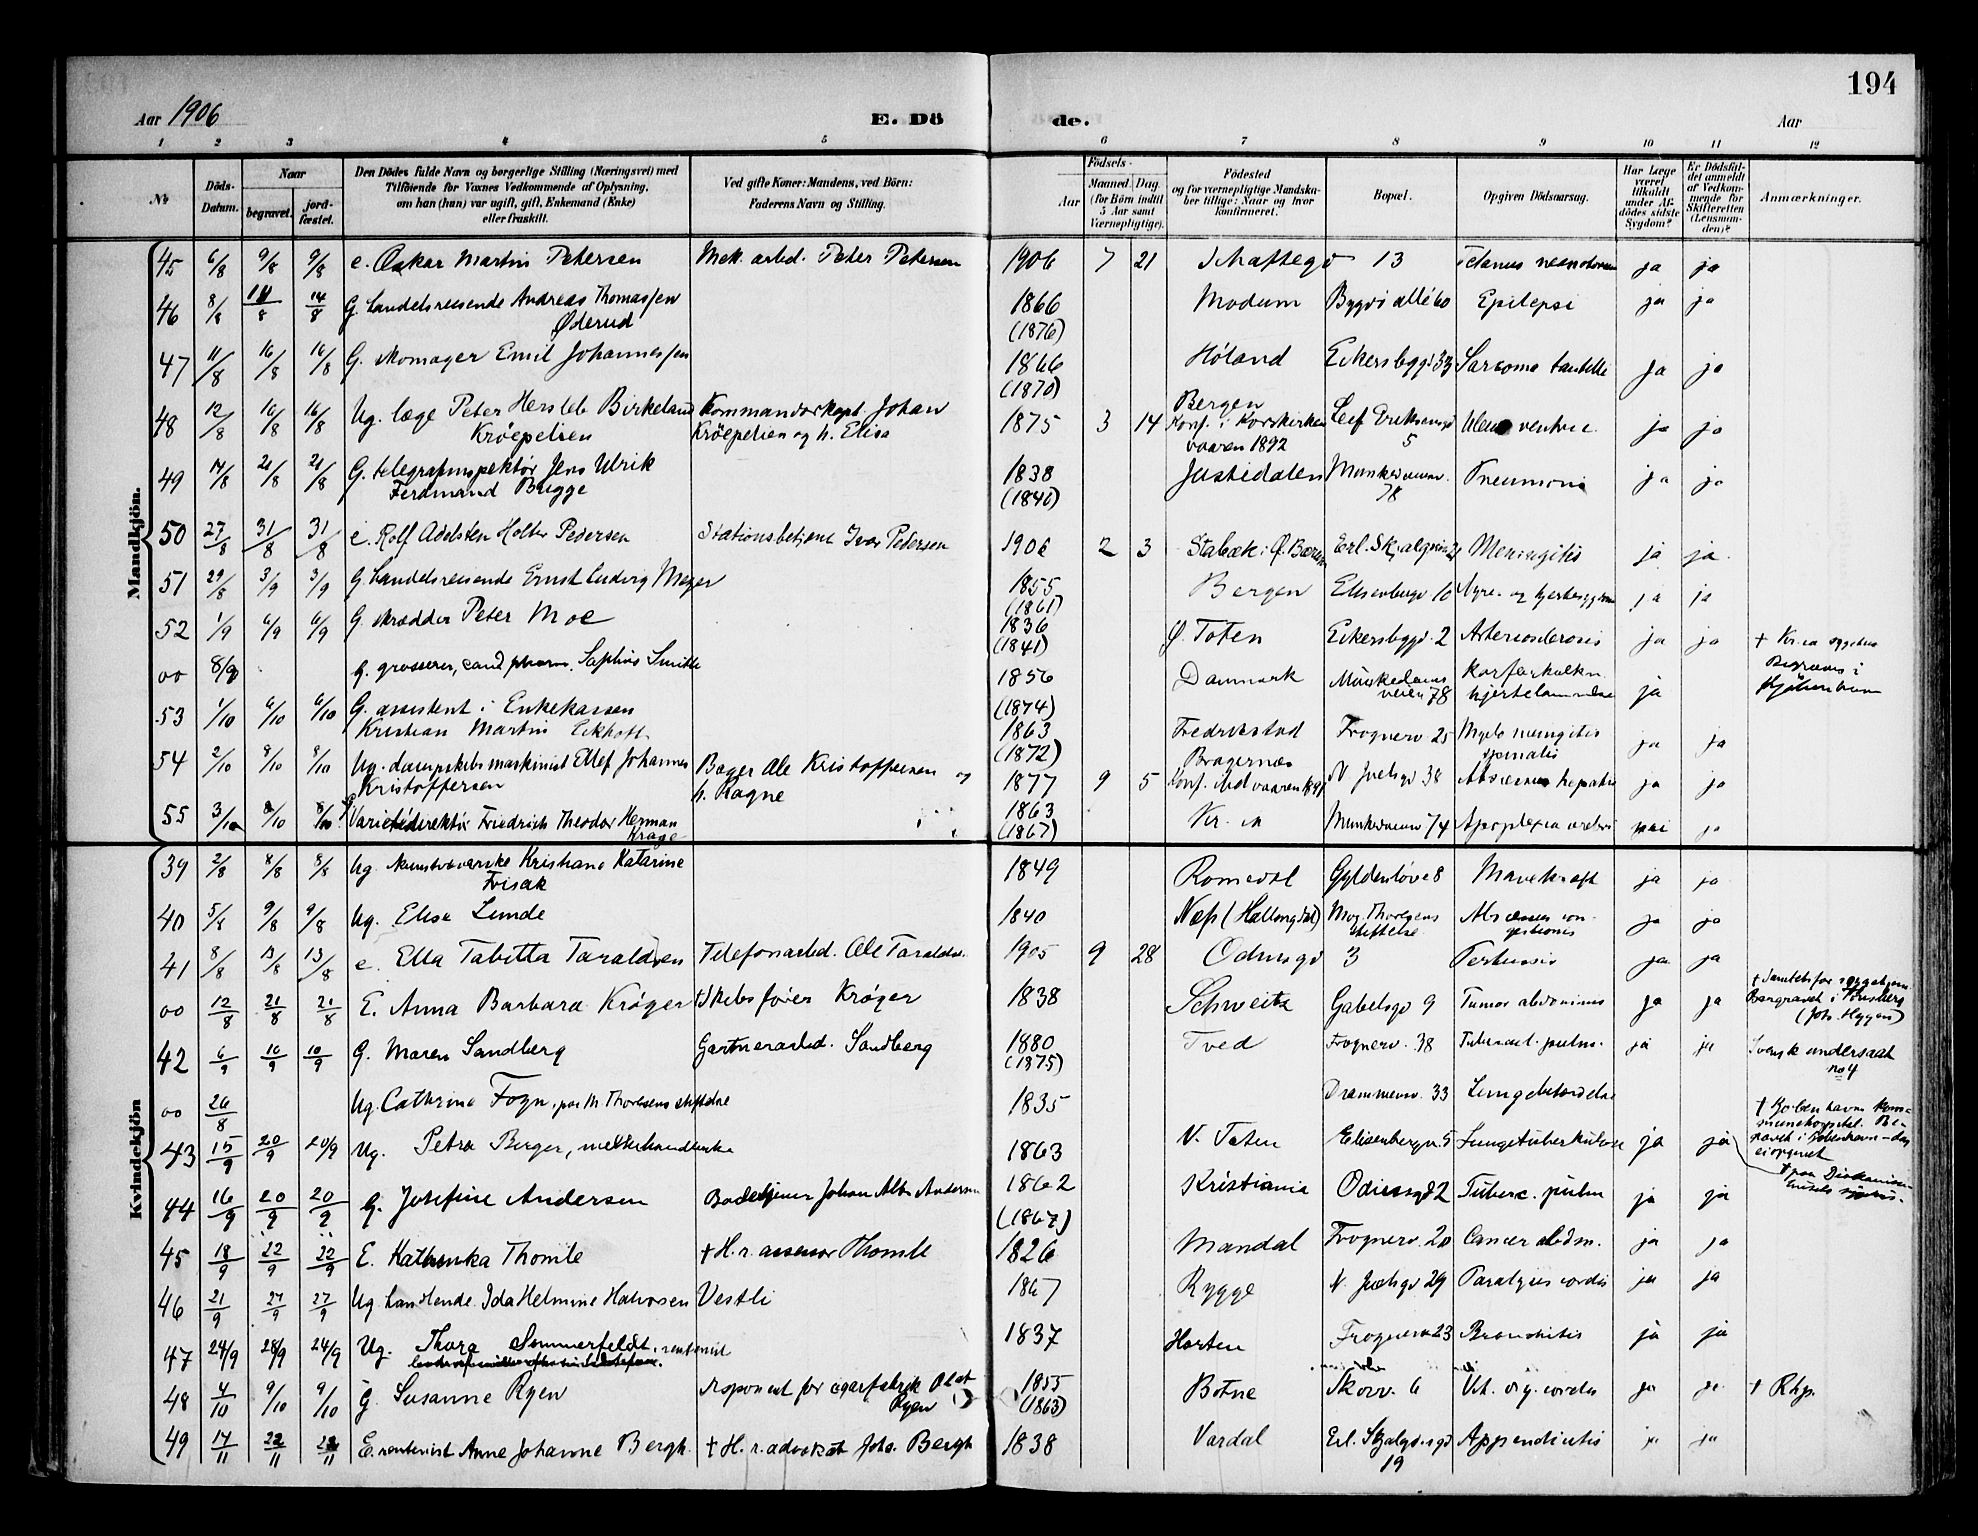 194
Aar 1906
E. Dö
de.
Aar
1 2 3 4 5 6 7 8 9 10 11 12
No
Döds-Datum.
Naar
begravet.
jord-fæstet.
Den Dödes fulde Navn og borgerlige Stilling (Næringsvei) med
Tilföiende for Voxnes Vedkommende af Oplysning,
om han (hun) var ugift, gift, Enkemand (Enke)
eller fraskilt.
Ved gifte Koner: Mandens, ved Börn:
Faderens Navn og Stilling.
Födsels-
Aar
Maaned Dag
(for Börn indtil
5 Aar samt
Værnepligtige).
Födested
og for værnepligtige Mandska-
ber tillige: Naar og hvor
konfirmeret.
Bopæl.
Opgiven Dödsaarsag.
Har Læge
været
tilkaldt
under Af-
dödes sidste
Sygdom?
Er Dödsfal-
det anmeldt
af Vedkom-
mende for
Skifteretten
(Lensman-
den)?
Anmærkninger.
Mandkjön.
45 6/8 9/8 9/8 e. Oskar Martin Petersen Mek. arbd. Peter Petersen 1906 7 21 Schaftegd 13 Tetanus ja ja
46 8/8 14/8 G. handelsreisende Andreas Thomassen
Øderud 1866
(1876) Modum Bygdø allé 60 Epilepsi ja ja
47 11/8 16/8 16/8 G. skomager Emil Johannessen 1866
(1870) Høland Eckersbggd 33 Sarcoma ja ja
48 12/8 16/8 16/8 Ug. læge Peter Hersleb Birkeland
Krøepelien Kommandørkapt. Johan
Krøepelien og h. Elisa 1875 3 14 Bergen
Konf. i Korskirken
vaaren 1892 Leif Eriksensgd
5 ventric. ja ja
49 17/8 21/8 21/8 G. telegrafinspektør Jens Ulrik
Ferdinand Brigge 1838
(1840) Justedalen Munkedamsv.
78 Pneumoni ja ja
50 27/8 31/8 31/8 e. Rolf Adelsten Holter Pedersen Stationsbetjent Ivar Pedersen 1906 2 3 Stabæk i Ø. Bærum Erl. Skjalgsson Meningitis ja ja
51 29/8 3/9 3/9 G. handelsreisende Ernst Ludvig Meyer 1855
(1861) Bergen Elisenbergv 10 Nyre- og hjertesygdom ja ja
52 1/9 6/9 6/9 G. skrædder Peter Moe 1836
(1841) Ø. Toten Eckersbggd. 2 Arteriosclerosis ja ja
00 8/9 G. grosserer, cand pharm. Saphus Smith 1856
(1874) Danmark Munkedams
veien 78 hjertelammelse ja † Kr.ia sygehus
Begraves i
Kjøbenhavn
53 1/10 6/10 6/10 G. assistent i Enkekassen
Kristian Martin Eckhoff 1863
(1872) Fredrikstad Frognerv 25 Myelo meningitis
spinalis ja ja
54 2/10 8/10 8/10 Ug. dampskibsmaskinist Ellef Johannes
Kristoffersen Bager Ole Kristoffersen og
h. Ragne 1877 9 5 Bragernæs
Konf. ibid vaaren 1891 N Juelsgd 38 Abscessus hepatis ja ja
55 3/10 8/10 8/10 Varietédirektør Friedrich Theodor Herman
Krage 1863
(1867) Kr.ia Munkedamsv 74 Apoplexia cerebri nei ja
Kvindekjön
39 2/8 8/8 8/8 Ug. Kunstvæverske Kristiane Katarine
Frisak 1849 Romedal Gyldenløve 8 Mavekræft ja ja
40 5/8 9/8 9/8 Ug. Elise Lunde 1840 Næs (Hallingdal) Mog. Thorsens
stiftelse Abscessus con-
gestionis ja ja
41 8/8 13/8 13/8 e. Ella Tabitta Taraldsen Telefonarbd. Ole Taraldsen 1905 9 28 Odinsgd 3 Pertussis ja ja
00 12/8 21/8 21/8 E. Anna Barbara Krøger † Skibsfører Krøger 1838 Schweitz Gabelsgd 9 Tumor abdominis ja ja Begravet i Tønsberg
(Joh. Heggen)
42 6/9 10/9 10/9 G. Maren Sandberg Gartnerarbd. Sandberg 1880
(1875) Tved Frognerv. 38 Tubercul. pulm. ja ja Svensk undersaat
no 4
00 26/8 Ug. Cathrine Fogn, paa M Thorsens stiftelse 1835 Drammensv. 33 Lungebetændelse
43 15/9 20/9 20/9 Ug. Petra Berger, melkehandlerske 1863 V. Toten Elisenbergv. 5 Lungetuberkulose ja ja † Kobenhavns Kom-
munehospital. Be-
gravet i Kobenhavn
44 16/9 20/9 20/9 G. Josefine Andersen Badetjener Johan Alb. Andersen 1862
(1867) Kristiania Odinsgd 2 Tuberc. pulm ja ja † paa Diakonisse-
husets sygehus.
45 18/9 22/9 22/9 E. Kathinka Thomle † H. r. assessor Thomle 1826 Mandal Frognerv. 20 Cancer abdm. ja ja
46 21/9 27/9 27/9 Ug. handlende Ida Helmine Halvorsen Vestli 1867 Rygge N. Juelsgd 29 Paralysis cordis ja ja
47 24/9 28/9 24/9 Ug. Thora Sommerfeldt, rentenist 1837 Horten Frognerv 23 Bronchitis ja ja
48 4/10 9/10 9/10 G. Susanne Ryen Disponent for cigarfabrik Olaf
Ryen 1855
(1863) Botne Skovv. 6 Vit. org. cordis ja ja † Rhp.
49 17/11 22/11 22/11 E. rentenist Anne Johanne Bergh. † H. r. advokat Johs. Bergh 1838 Vardal Erl. Skjalgsonsgd
19 Appendicitis ja ja